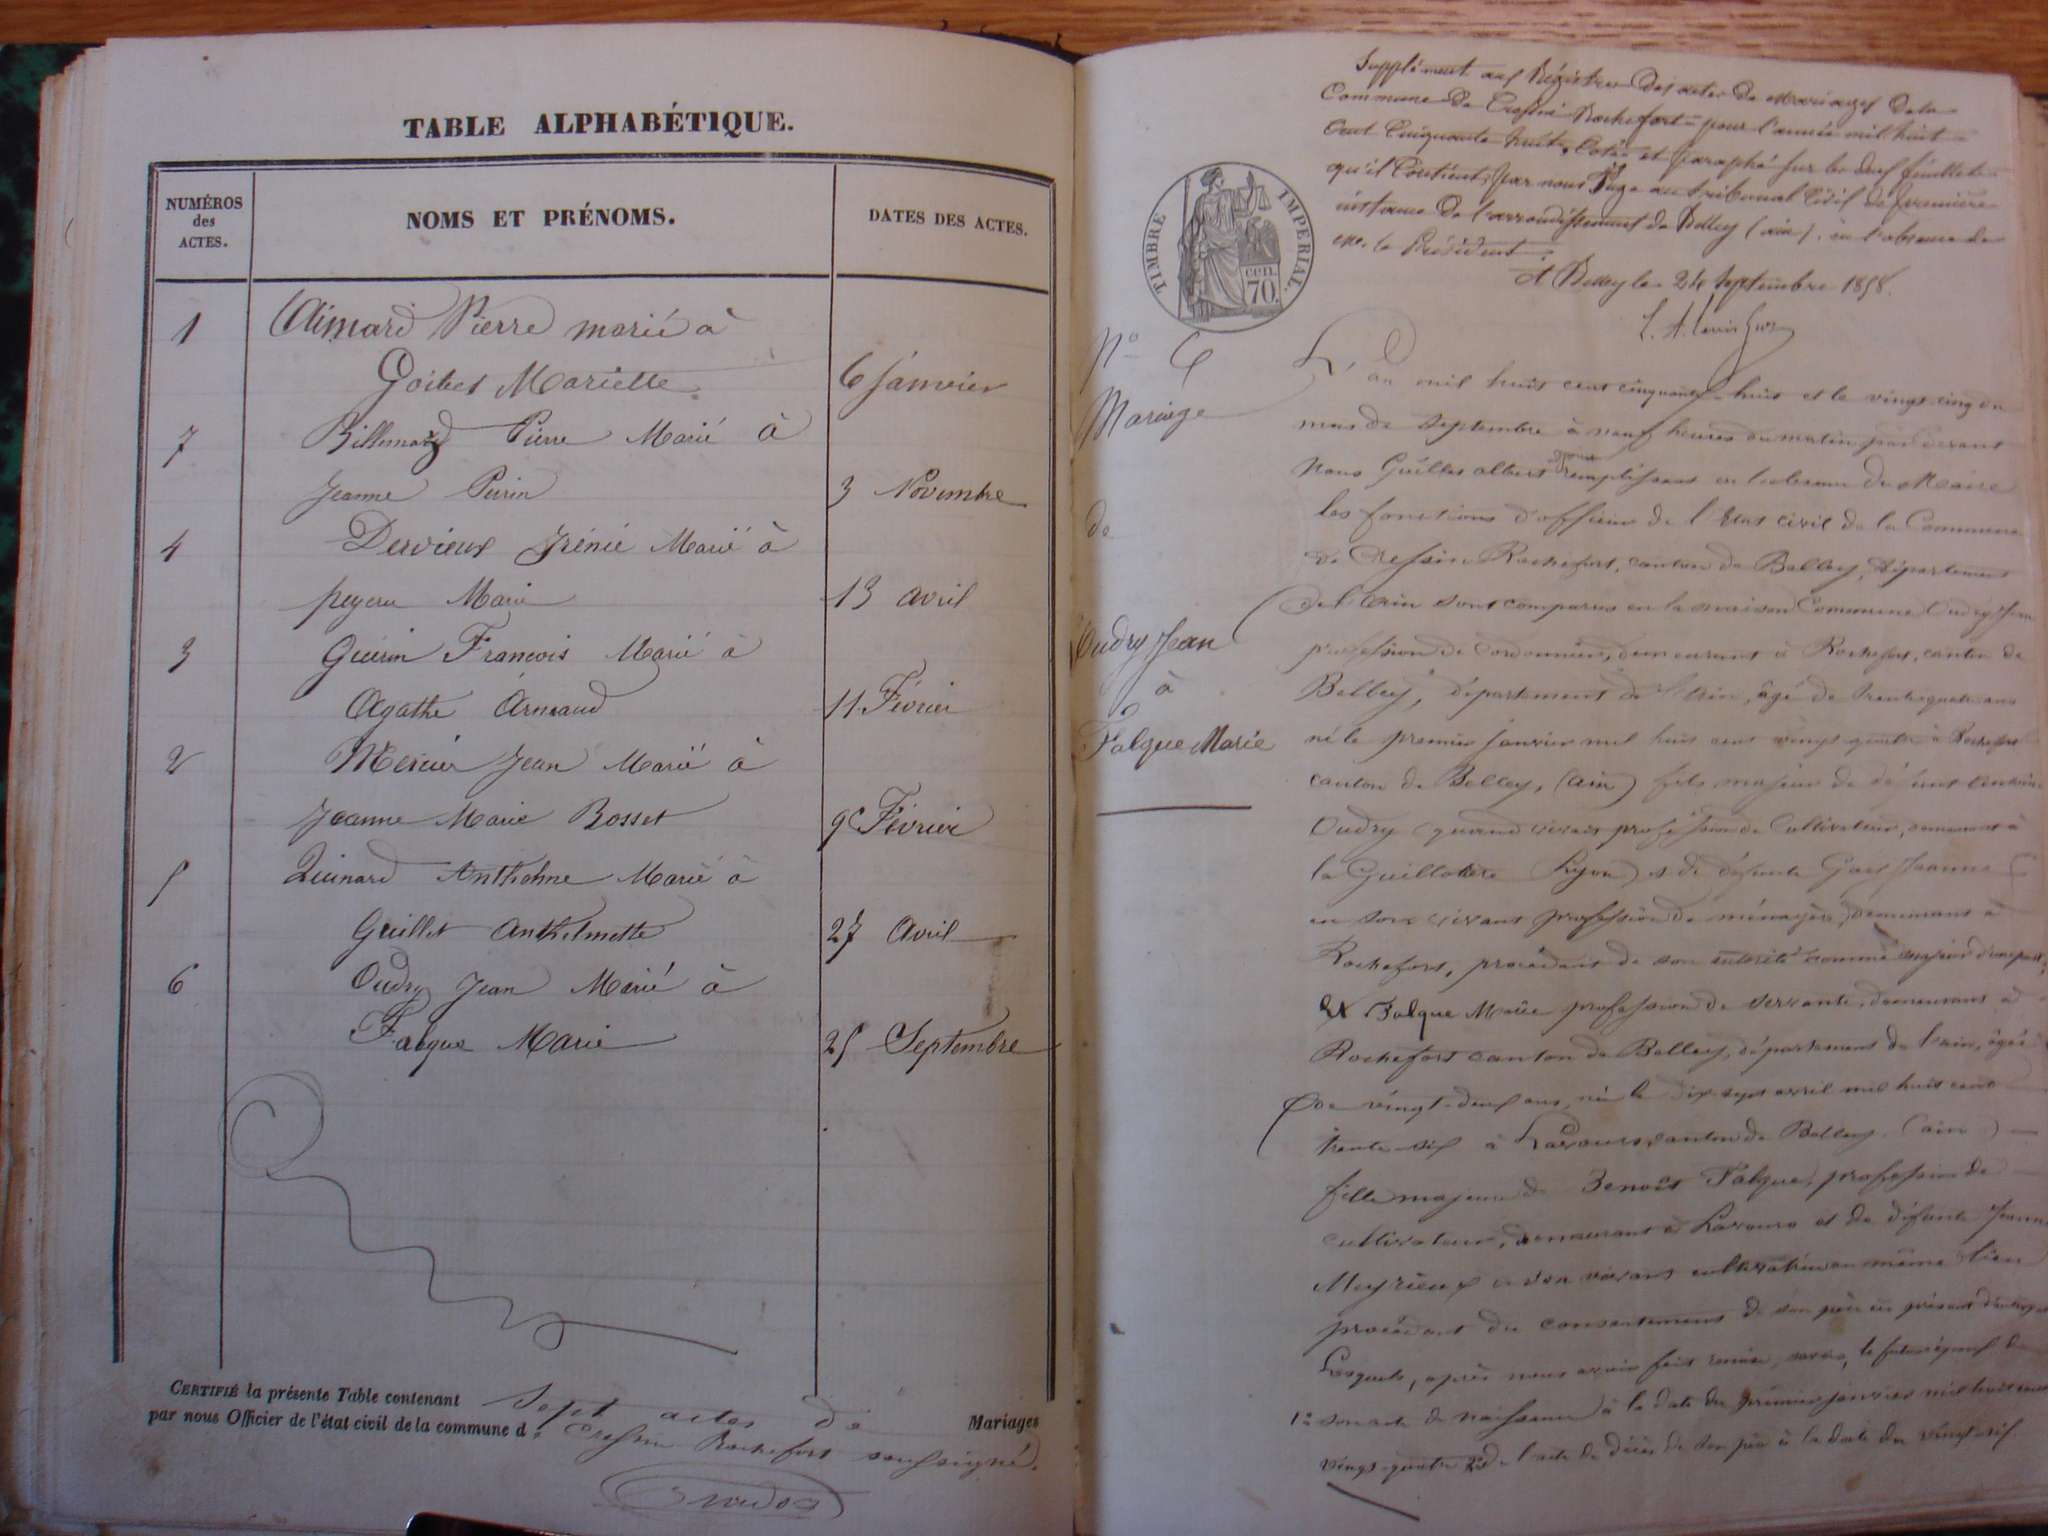 TABLE ALPHABÉTIQUE.
NUMÉROS
des
ACTES.
NOMS ET PRÉNOMS.
DATES DES ACTES.
1 Aimard Pierre marié à
Goibet Mariette 6 Janvier
7 Billemaz Pierre Marié à
Jeanne Perrin 3 Novembre
4 Dervieux Irénié Marié à
peyeru Marie 13 avril
3 Guérin Francois Marié à
Agathe Arnaud 11 Février
2 Mercier Jean Marié à
Jeanne Marie Bosset 9 Février
5 Quinard Anthelme Marié à
Guillet Anthelmette 27 Avril
6 Oudry Jean Marié à
Falque Marie 25 Septembre
CERTIFIÉ la présente Table contenant Sept actes de Mariages
par nous Officier de l'état civil de la commune de Cressin Rochefort soussigné.
Supplément aux Régistres des actes de Mariages de la
Commune de Cressin Rochefort pour l'année mil huit
Cent Cinquante huit, Coté et paraphé sur les deux feuillets
qu'il Contient, par nous Juge au tribunal Civil de première
instance de l'arrondissement de Belley (ain). en l'absence de
le Président.
A Belley le 24 Septembre 1858.
TIMBRE IMPERIAL.
cen.
70.
N° 6
Mariage
de
Oudry Jean
à
Falque Marie
L'an mil huit cent cinquante-huit et le vingt cinq du
mois de Septembre à neuf heures du matin par devant
Nous Guillet albert adjoint remplissant en l'absence du Maire
les fonctions d'officier de l'Etat civil de la Commune
de Cressin Rochefort, canton de Belley, Département
de l'Ain sont comparus en la maison Commune Oudry Jean
profession de Cordonnier, demeurant à Rochefort, canton de
Belley, département de l'Ain, âgé de trente quatre ans
né le premier Janvier mil huit cent vingt quatre à Rochefort
canton de Belley, (ain) fils majeur de défunt Antoine
Oudry quand vivait profession de Cultivateur, demeurant à
la Guillotière (Lyon) & de défunte Jeanne
en son vivant profession de ménagère, demeurant à
Rochefort, procédant de son autorité comme majeur d'une part,
Et Falque Marie profession de servante, demeurant à
Rochefort canton de Belley, département de l'ain, âgée
de vingt-deux ans, née le dix sept avril mil huit cent
trente-six à Lavours canton de Belley (ain)
fille majeure de Benoit Falque, profession de
cultivateur, demeurant à Lavours et de défunte Jeanne
Meyrieux en son vivant cultivatrice au même lieu
procédant du consentement de son père ici présent d'autre part
Lesquels, après nous avoir fait remise, savoir, le futur époux de
1° son acte de naissance à la date du premier janvier mil huit cent
vingt-quatre 2° de l'acte de décès de son père à la date du vingt-six